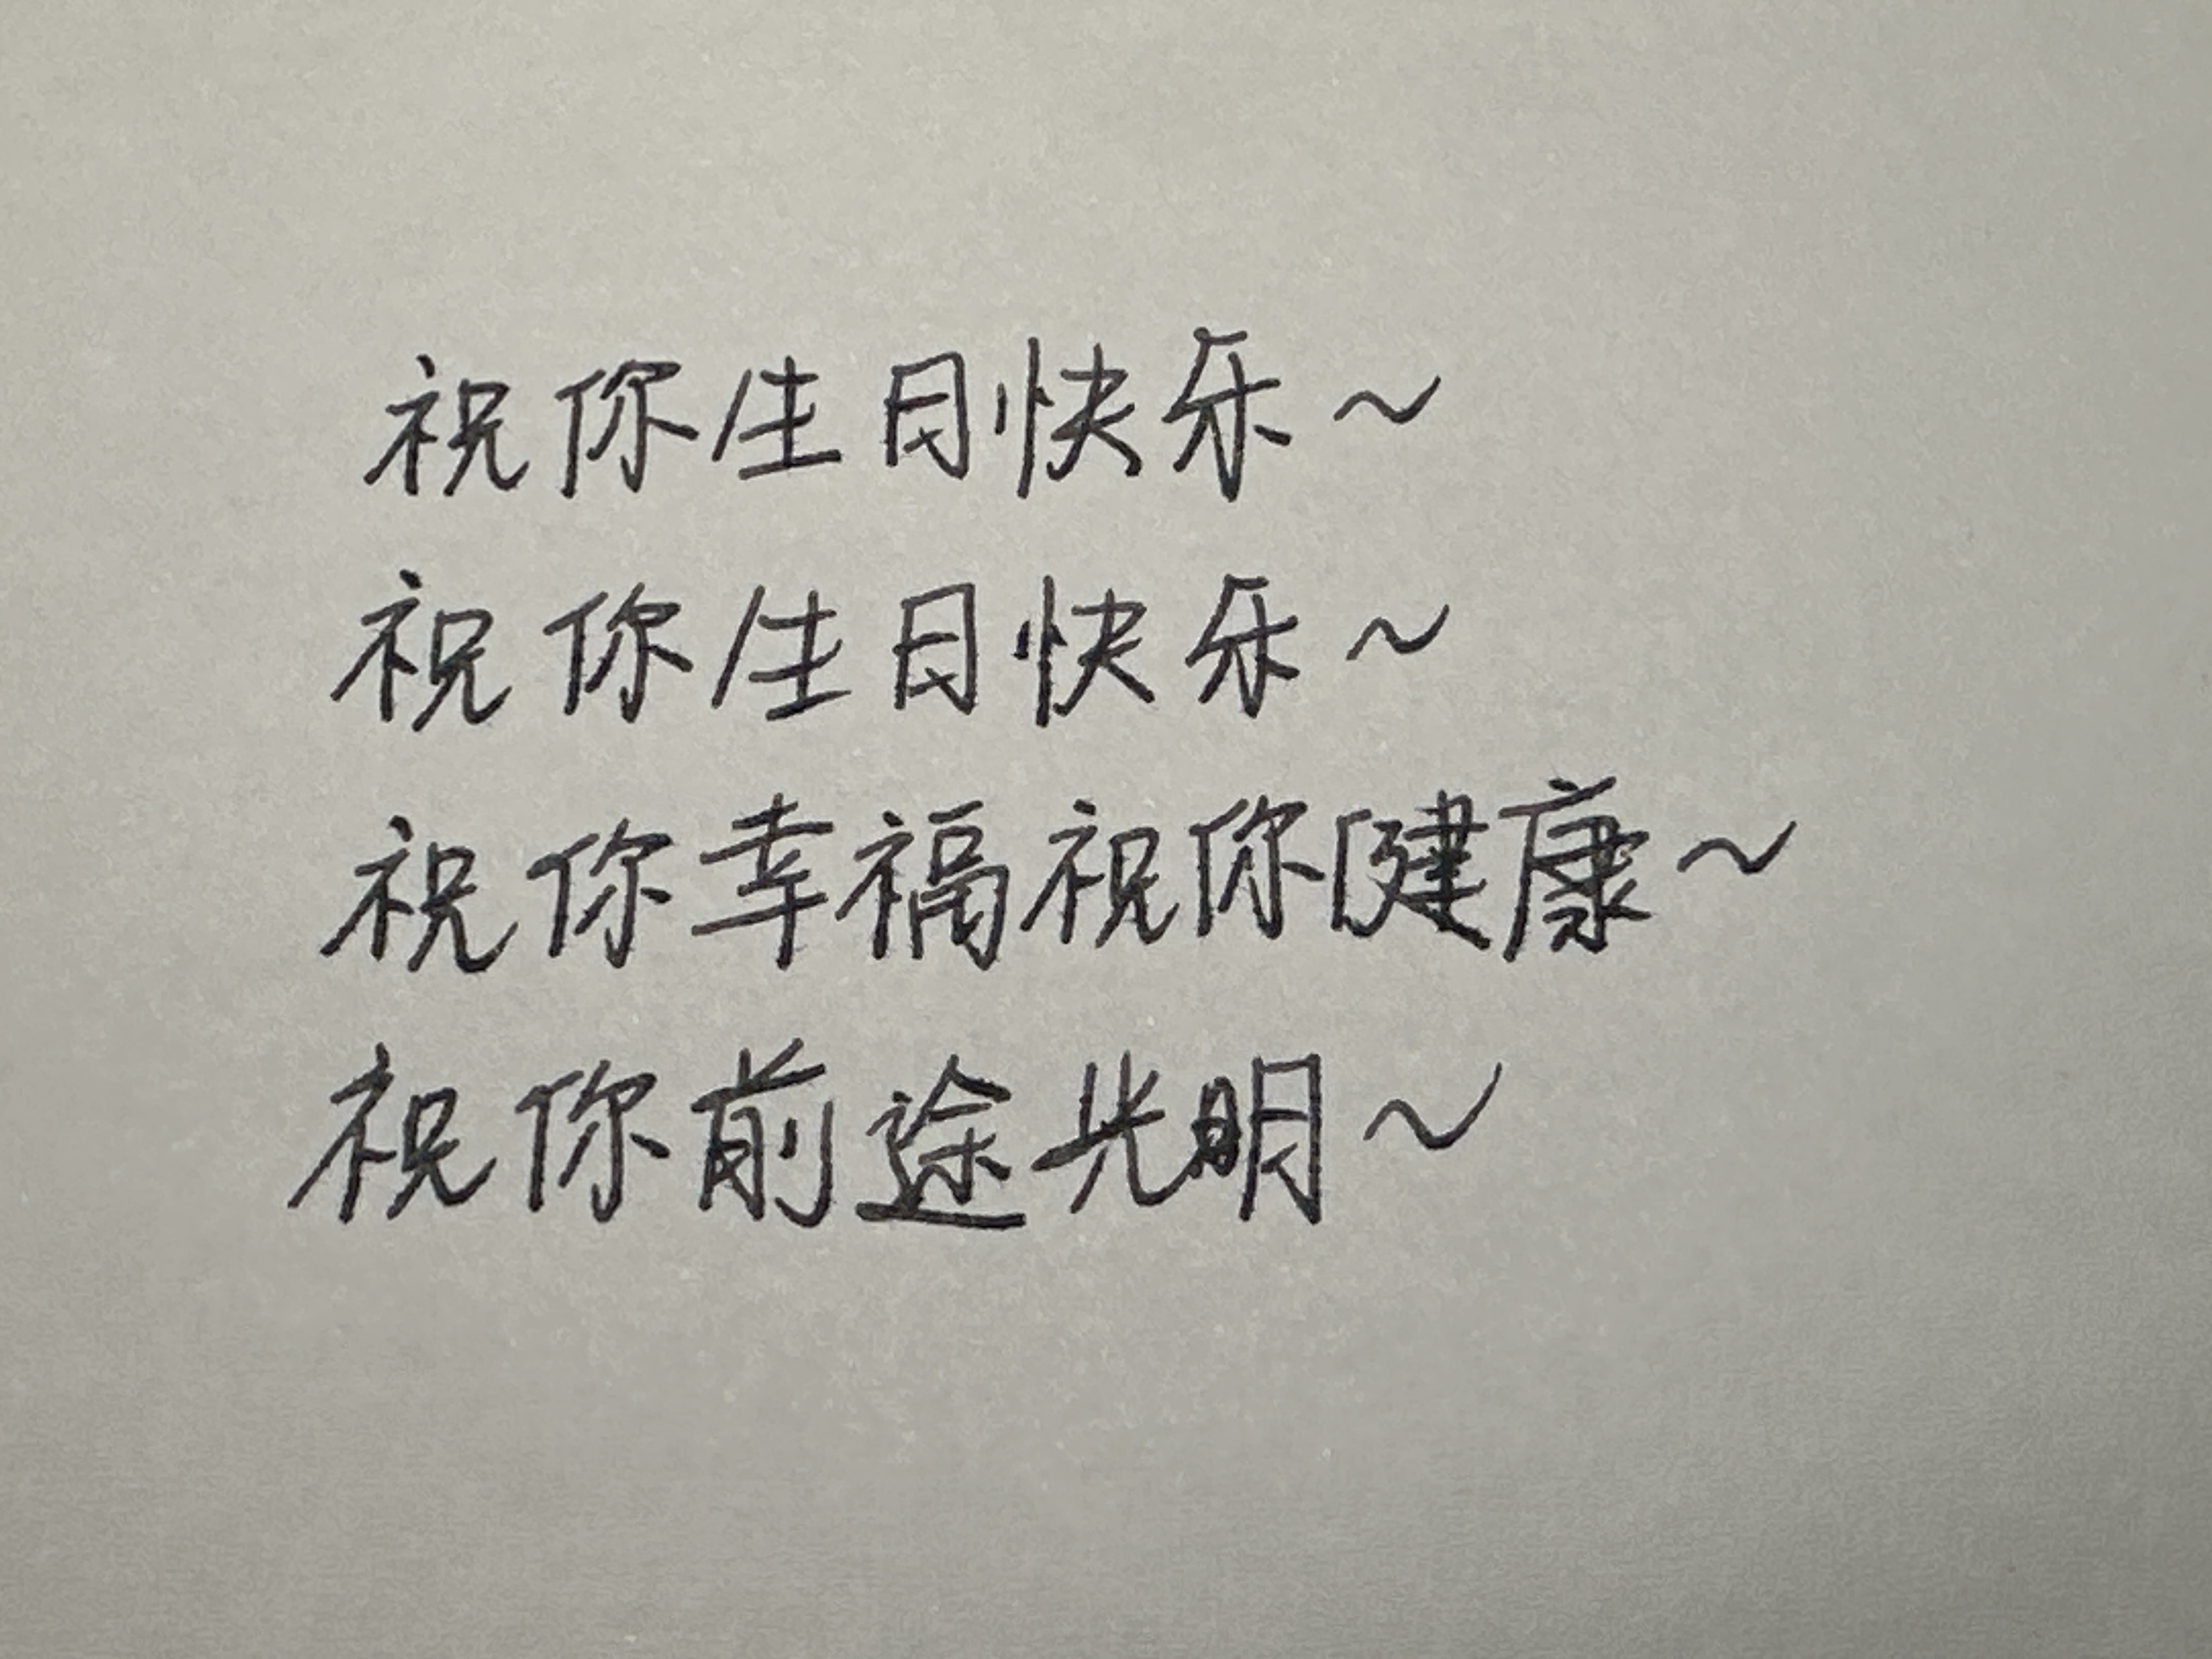 祝你生日快乐~
祝你生日快乐~
祝你幸福祝你健康~
祝你前途光明~